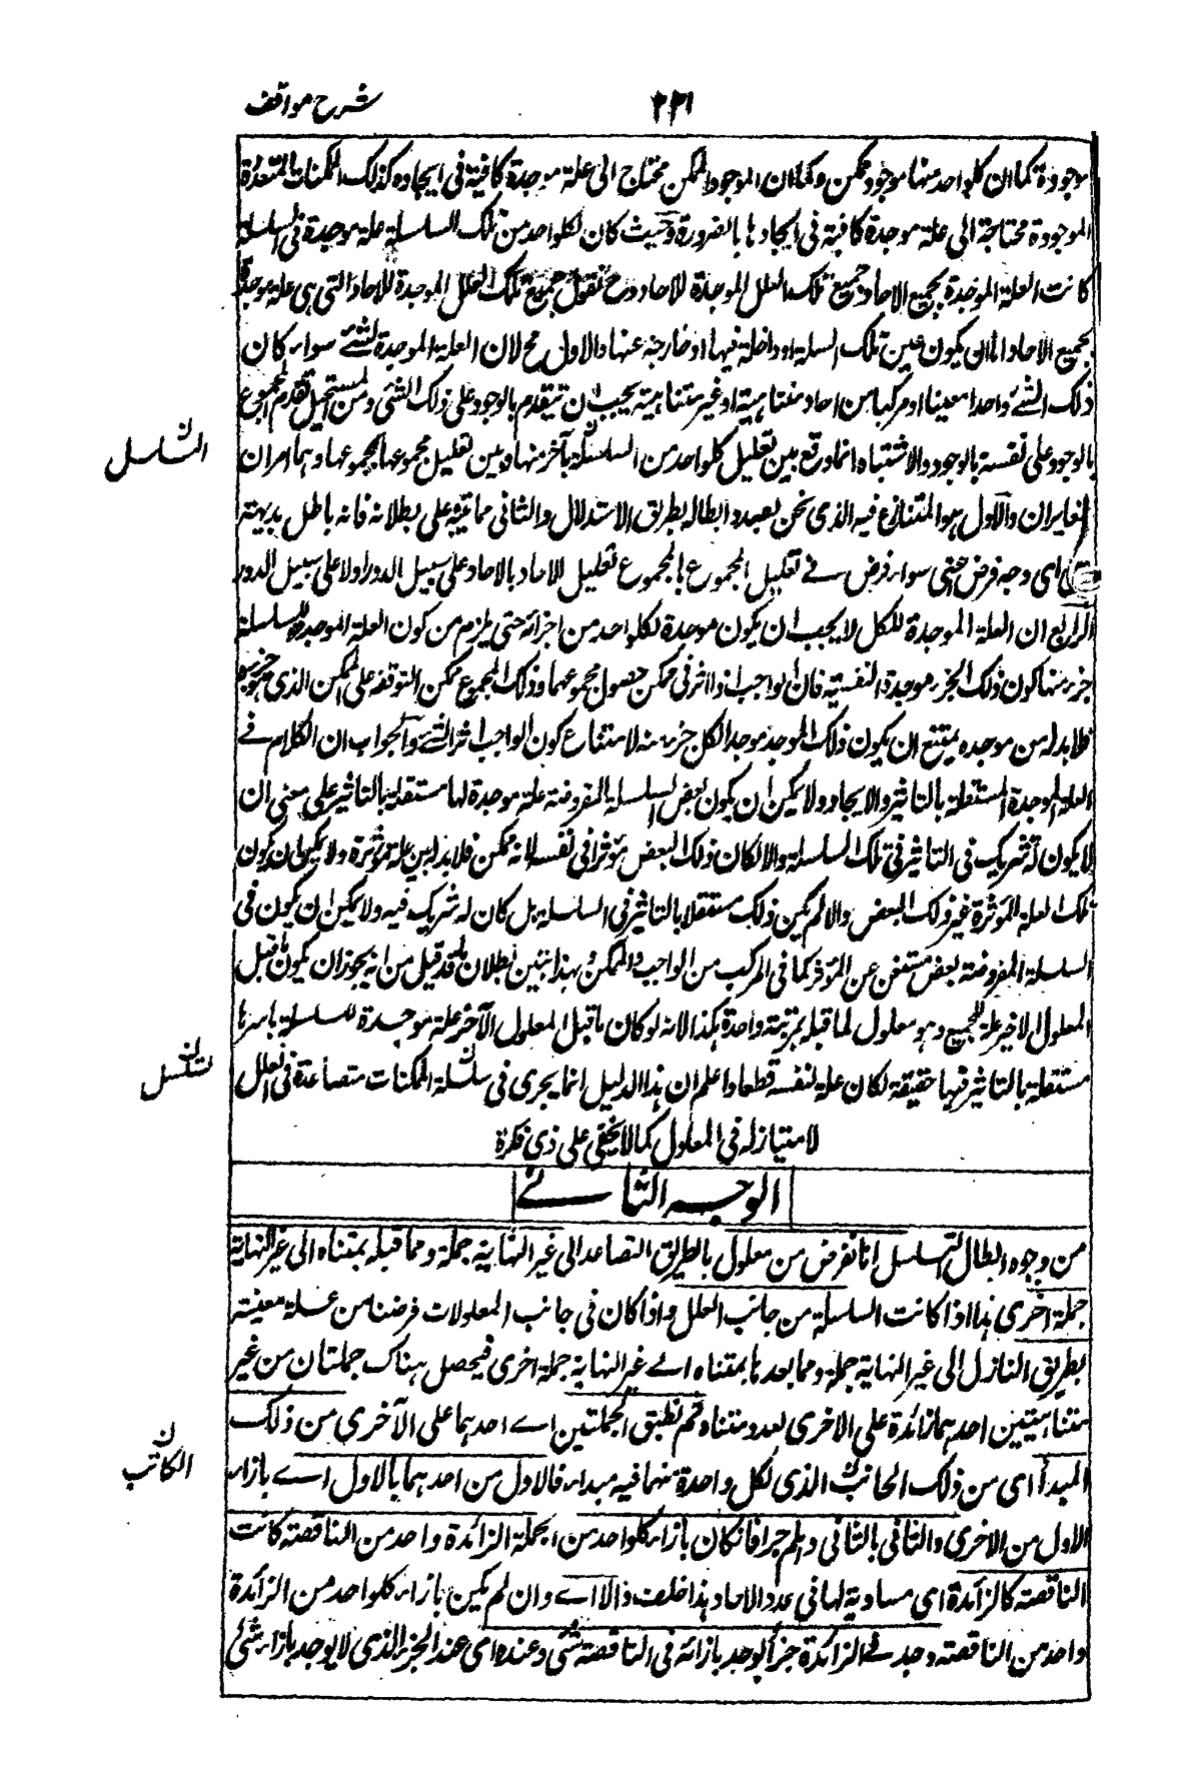 شرح مواقف
۲۲۱
موجودة كما ان كلواحد منها موجود ممكن وكما ان الموجود الممكن محتاج الى علة موجدة كافية فى ايجاده كذلك الممكنات المتعددة
الموجودة محتاجة الى علة موجدة كافية فى ايجادها بالضرورة وحيث كان لكلواحد من تلك السلسلة علة موجدة فى السلسلة
كانت العلة الموجدة لجميع الاحاد جميع تلك العلل الموجدة للاحاد وح نقول جميع تلك العلل الموجدة للاحاد التى هى علة موجدة
لجميع الاحاد اما ان يكون عين تلك السلسلة او داخلة فيها او خارجة عنها والاول مح لان العلة الموجدة للشئ سواء كان
ذلك الشئ واحدا معينا او مركبا من احاد متناهية او غير متناهية يجب ان يتقدم بالوجود على ذلك الشئ ومن المستحيل تقدم المجموع
بالوجود على نفسه بالوجود والاشتباه انما وقع بين تعليل كلواحد من السلسلة بآخر منها وبين تعليل مجموعها بمجموعها وهما امران
متغايران والاول هو المتنازع فيه الذى نحن بصدد ابطاله بطريق الاستدلال والثانى مما تنبه على بطلانه فانه باطل بديهة
على اى وجه فرض حتى سواء فرض فى تعليل المجموع بالمجموع تعليل الاحاد بالاحاد على سبيل الدور او لا على سبيل الدور
الرابع ان العلة الموجدة للكل لا يجب ان يكون موجدة لكلواحد من اجزائه حتى يلزم من كون العلة الموجدة للسلسلة
جزء منها كون ذلك الجزء موجدة لنفسه فان الواجب اذا اثر فى ممكن حصول مجموعهما وذلك المجموع ممكن لتوقفه على الممكن الذى هو جزءه
فلابد له من موجده يمتنع ان يكون ذلك الموجد موجد الكل جزء منه لامتناع كون الواجب اثرا لشئ والجواب ان الكلام فى
العلة الموجدة المستقلة بالتاثير والايجاد ولا يمكن ان يكون بعض السلسلة المفروضة علة موجدة لها مستقلة بالتاثير على معنى ان
لا يكون له شريك فى التاثير فى تلك السلسلة والا لكان ذلك البعض مؤثرا فى نفسه لانه ممكن فلابد له من علة مؤثرة ولا يمكن ان يكون
تلك العلة المؤثرة غير ذلك البعض والا لم يكن ذلك مستقلا بالتاثير فى السلسلة بل كان له شريك فيه ولا يمكن ان يكون فى
السلسلة المفروضة بعض مستغن عن المؤثر كما فى المركب من الواجب والممكن وبهذا تبين بطلان ما قد قيل من انه يجوز ان يكون ما قبل
المعلول الاخير علة للجميع وهو معلول لما قبله بمرتبة واحدة هكذا لانه لو كان ما قبل المعلول الآخر علة موجدة للسلسلة باسرها
مستقلة بالتاثير فيها حقيقة لكان علة لنفسه قطعا واعلم ان هذا الدليل انما يجرى فى سلسلة الممكنات متصاعدة فى العلل
لا متنازلة فى المعلول كما لا يخفى على ذى فكرة
الوجه الثانى
من وجوه ابطال التسلسل انا نفرض من معلول بالطريق التصاعد الى غير النهاية جملة ومما قبله بمتناه الى غير النهاية
جملة اخرى هذا اذا كانت السلسلة من جانب العلل واذا كان فى جانب المعلولات فرضنا من علة معينة
بطريق التنازل الى غير النهاية جملة ومما بعدها بمتناه الى غير النهاية جملة اخرى فيحصل هناك جملتان من غير
متناهيتين احدهما زائدة على الاخرى بعدد متناه ثم نطبق الجملتين اے احدهما على الآخرى من ذلك
المبدأ اى من ذلك الجانب الذى لكل واحدة منهما فيه مبداء فالاول من احدهما بالاول اے بازاء
الاول من الاخرى والثانى بالثانى وهلم جرا فان كان بازاء كلواحد من الجملة الزائدة واحد من الناقصة كانت
الناقصة كالزائدة اى مساوية لها فى عدد الاحاد هذا خلف والا اے وان لم يكن بازاء كلواحد من الزائدة
واحد من الناقصة وجد فى الزائدة جزء لا يوجد بازائه فى الناقصة شئ وعنده اى عند الجزء الذى لا يوجد بازائه شئ
التسلسل
سلسل
الكاتب